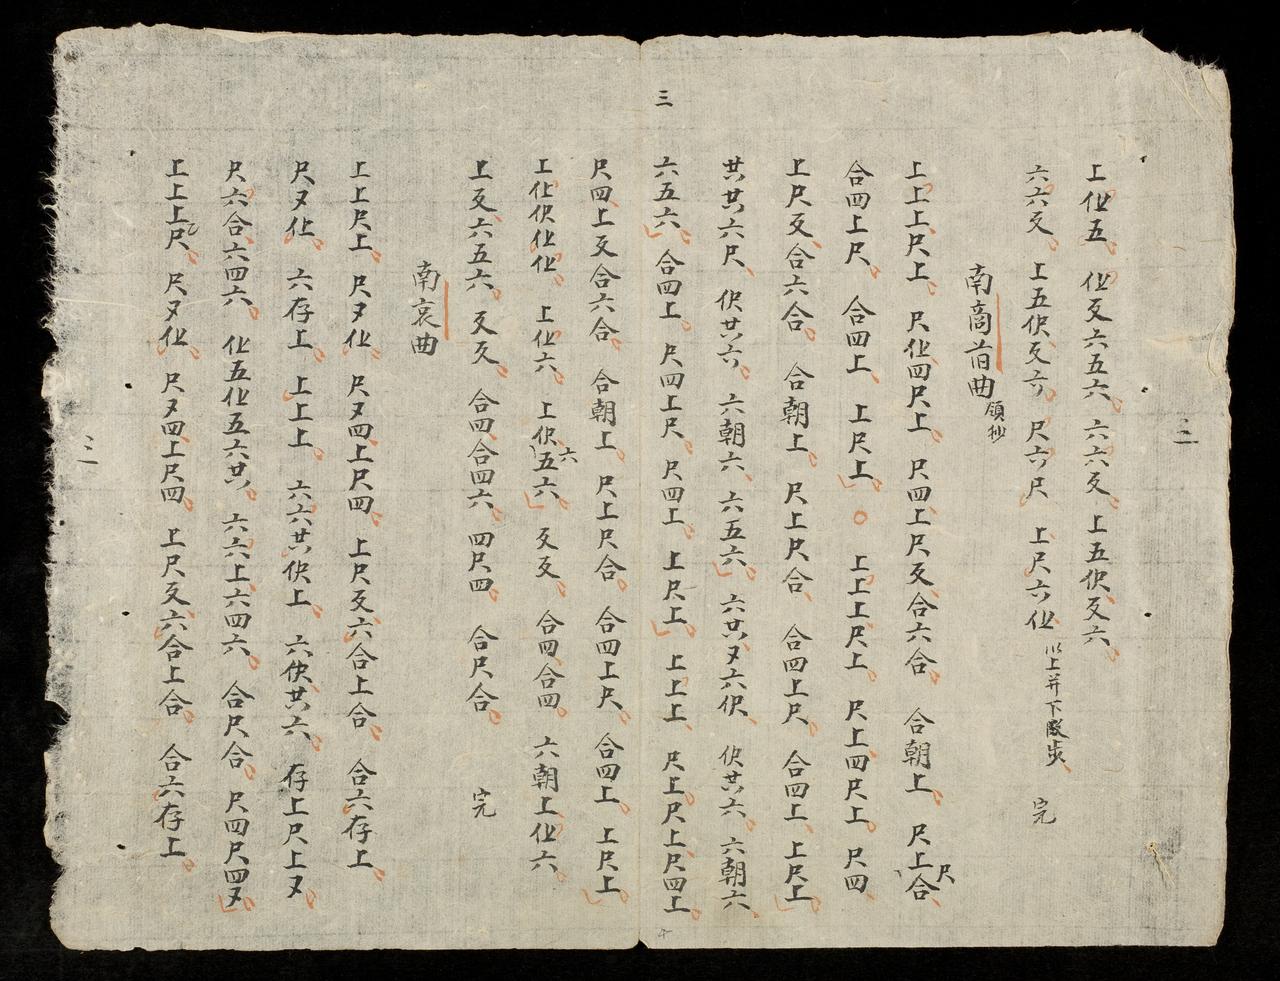 三
三
上㐵五 㐵㐅六五六 六六㐅 上五伬㐅六
六六㐅 上五伬㐅六 尺六尺 上尺六㐵 以上并下 完
南商首曲
上上上尺上 尺㐵四尺上 尺四上尺㐅合六合 合朝上 尺上合
尺
合四上尺 合四上 上尺上 ○ 上上上尺上 尺上四尺上 尺四
上尺㐅合六合 合朝上 尺上尺合 合四上尺 合四上 上尺上
共共六尺 伬共六 六朝六 六五六 六共又六伬 伬共六 六朝六
六五六 合四上 尺四上尺 尺四上 上尺上 上上上 尺上尺上尺四上
尺四上㐅合六合 合朝上 尺上尺合 合四上尺 合四上 上尺上
上㐵伬㐵㐵 上㐵六 上伬五六 㐅㐅 合四合四 六朝上㐵六
六
上㐅六五六 㐅㐅 合四合四六 四尺四 合尺合 完
南哀曲
上上尺上 尺又㐵 尺又四上尺四 上尺㐅六合上合 合六存上
尺又㐵 六存上 上上上 六六共伬上 六伬共六 存上尺上又
尺六合六四六 㐵五㐵五六共 六六上六四六 合尺合 尺四尺四又
上上上尺 尺又㐵 尺又四上尺四 上尺㐅六合上合 合六存上
三